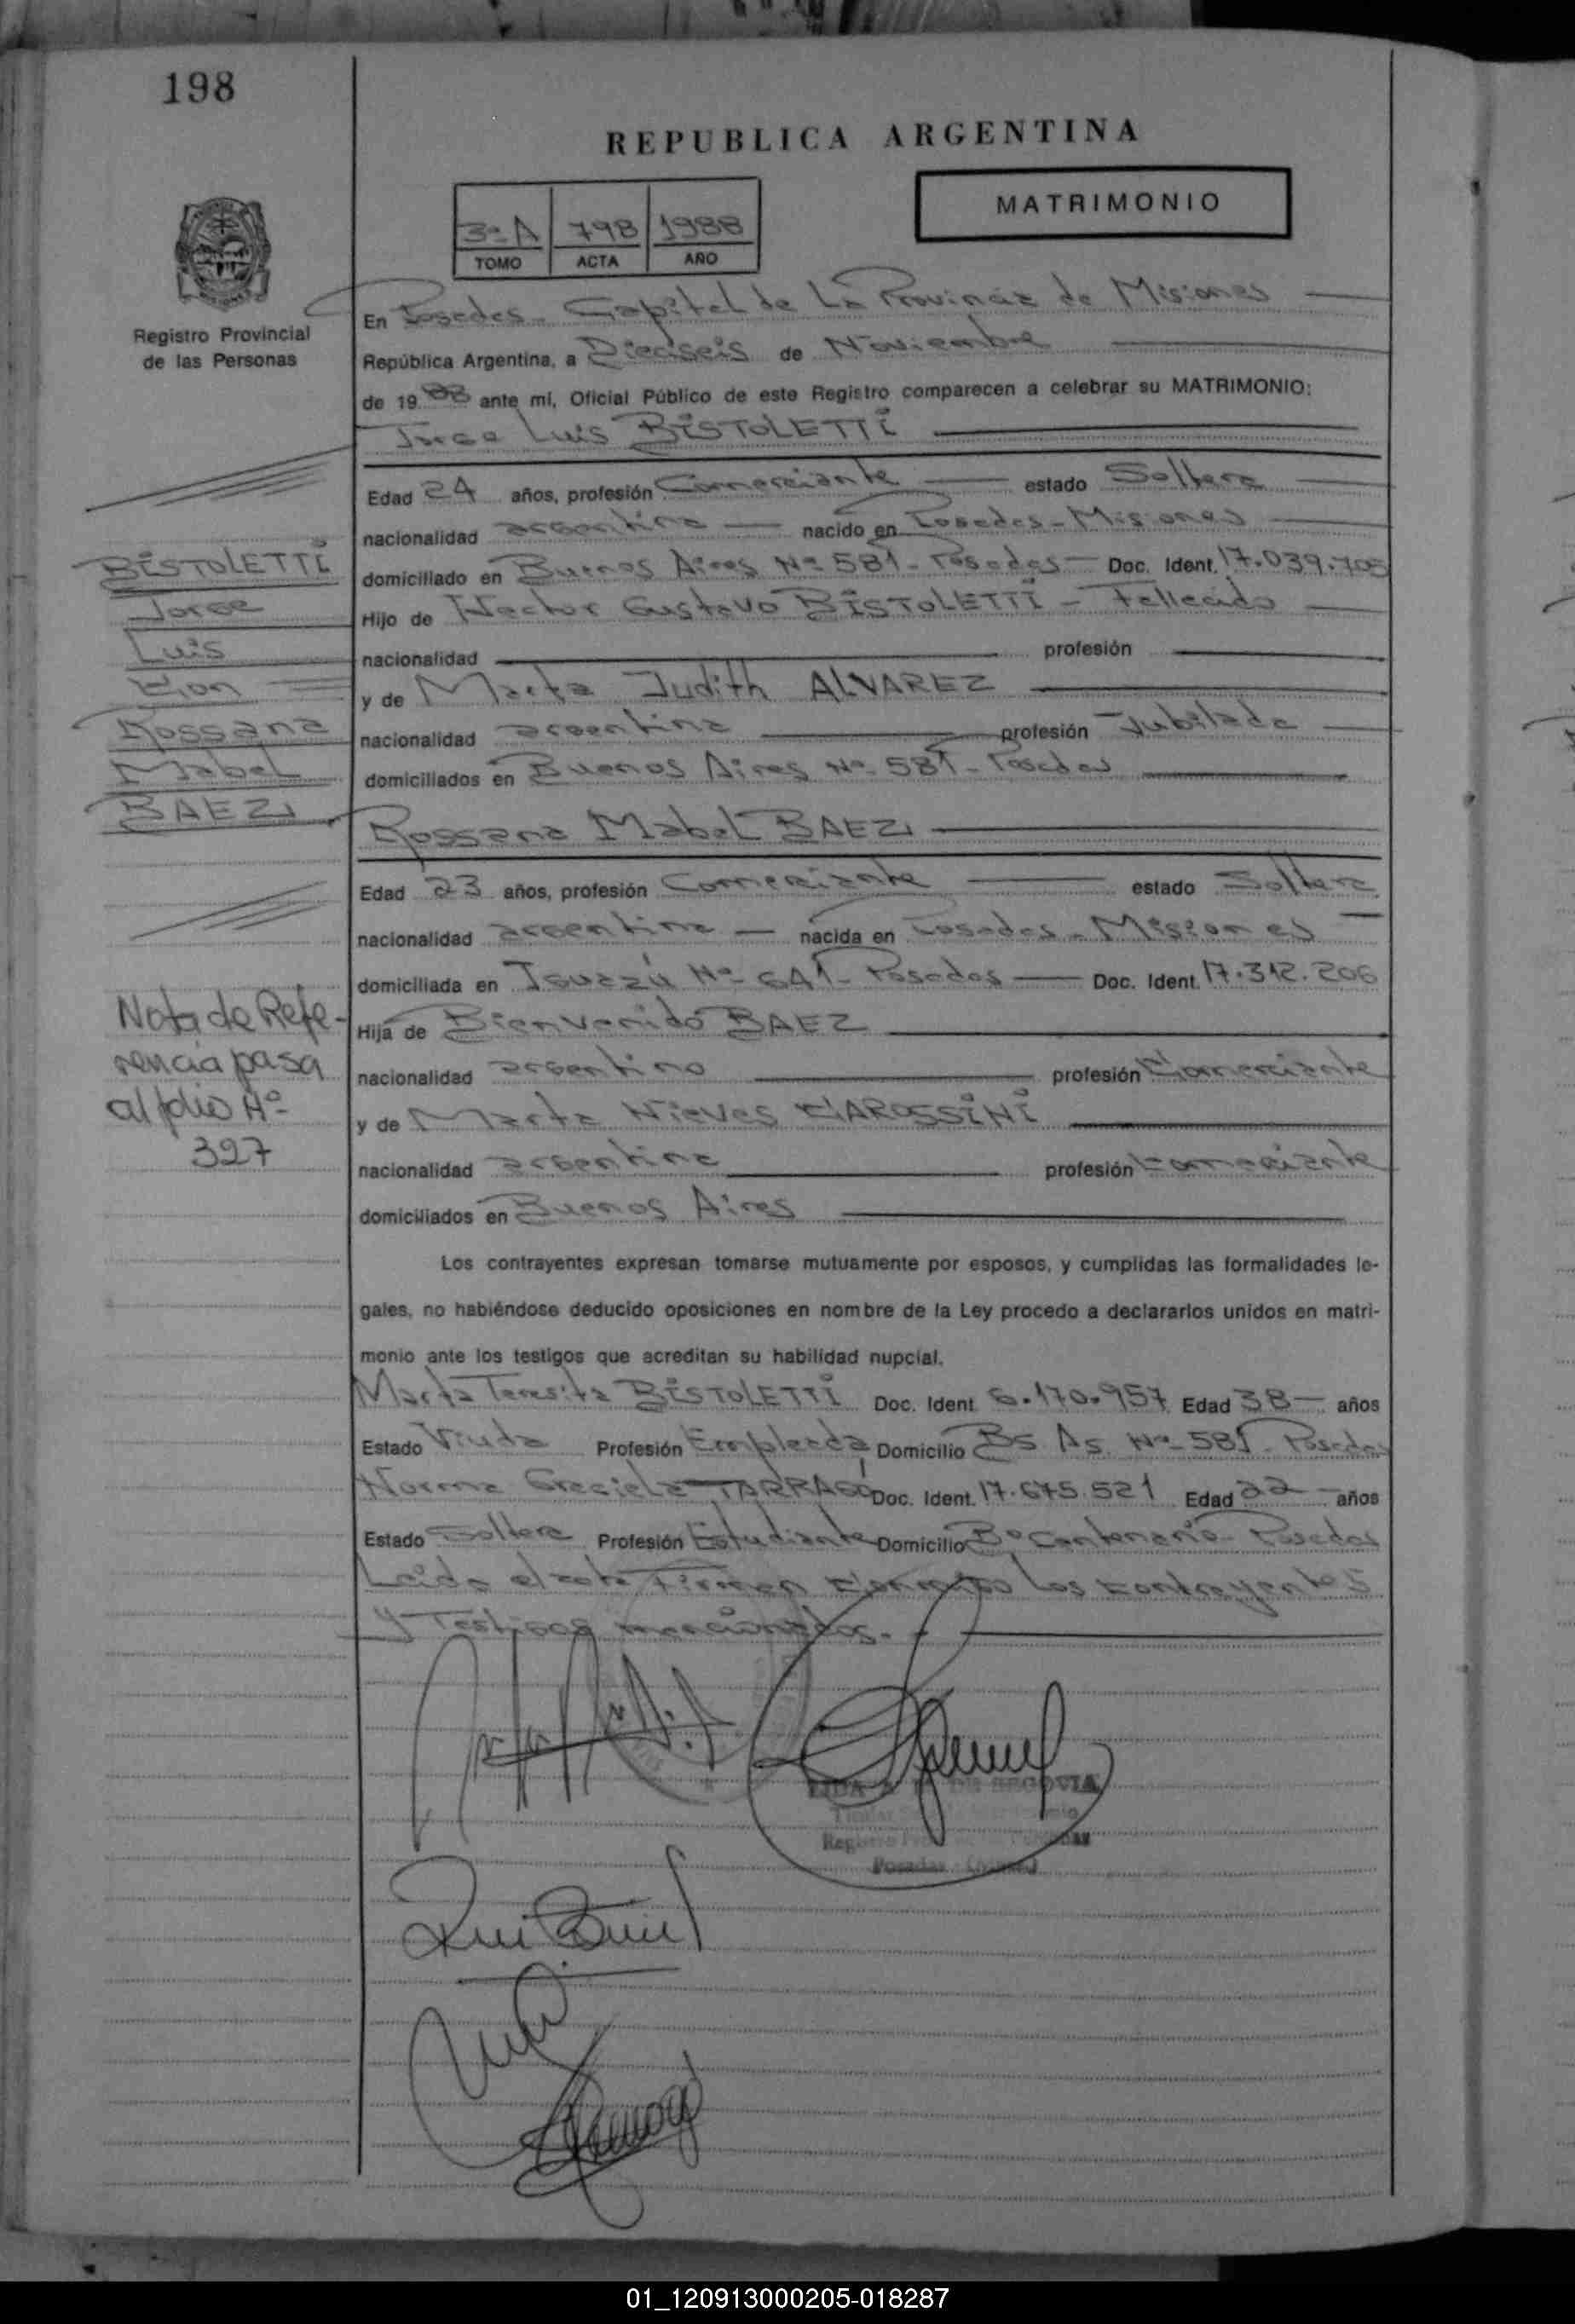 198
REPUBLICA ARGENTINA
MATRIMONIO
3ª A 798 1988
TOMO ACTA AÑO
Registro Provincial
de las Personas
En Posadas - Capital de La Provincia de Misiones
República Argentina, a Dieciseis de Noviembre
de 19 88 ante mí, Oficial Público de este Registro comparecen a celebrar su MATRIMONIO:
Jorge Luis BISTOLETTI
Edad 24 años, profesión Comerciante estado Soltero
nacionalidad argentina nacido en Posadas - Misiones
domiciliado en Buenos Aires Nº 581 - Posadas Doc. Ident. 17.039.705
Hijo de Hector Gustavo BISTOLETTI - Fallecido
nacionalidad profesión
y de Marta Judith ALVAREZ
nacionalidad argentina profesión Jubilada
domiciliados en Buenos Aires Nº 581 - Posadas
Rossana Mabel BAEZ
Edad 23 años, profesión Comerciante estado Soltera
nacionalidad argentina nacida en Posadas - Misiones
domiciliada en Iguazú Nº 641 - Posadas Doc. Ident. 17.312.206
Hija de Bienvenido BAEZ
nacionalidad argentino profesión Comerciante
y de Marta Nieves CAROSSINI
nacionalidad argentina profesión Comerciante
domiciliados en Buenos Aires
Los contrayentes expresan tomarse mutuamente por esposos, y cumplidas las formalidades le-
gales, no habiéndose deducido oposiciones en nombre de la Ley procedo a declararlos unidos en matri-
monio ante los testigos que acreditan su habilidad nupcial.
Marta Teresita BISTOLETTI Doc. Ident. 6.170.957 Edad 38 años
Estado Viuda Profesión Empleada Domicilio Bs As. Nº 581 - Posadas
Norma Graciela TARRAGÓ Doc. Ident. 17.675.521 Edad 22 años
Estado Soltera Profesión Estudiante Domicilio Bº Centenario - Posadas
Leida el acta Firman conmigo los contrayentes
y Testigos mencionados.
BISTOLETTI
Jorge
Luis
Con
Rossana
Mabel
BAEZ
Nota de Refe-
rencia pasa
al folio Nº
327
DE SEGOVIA
Posadas
01_120913000205-018287